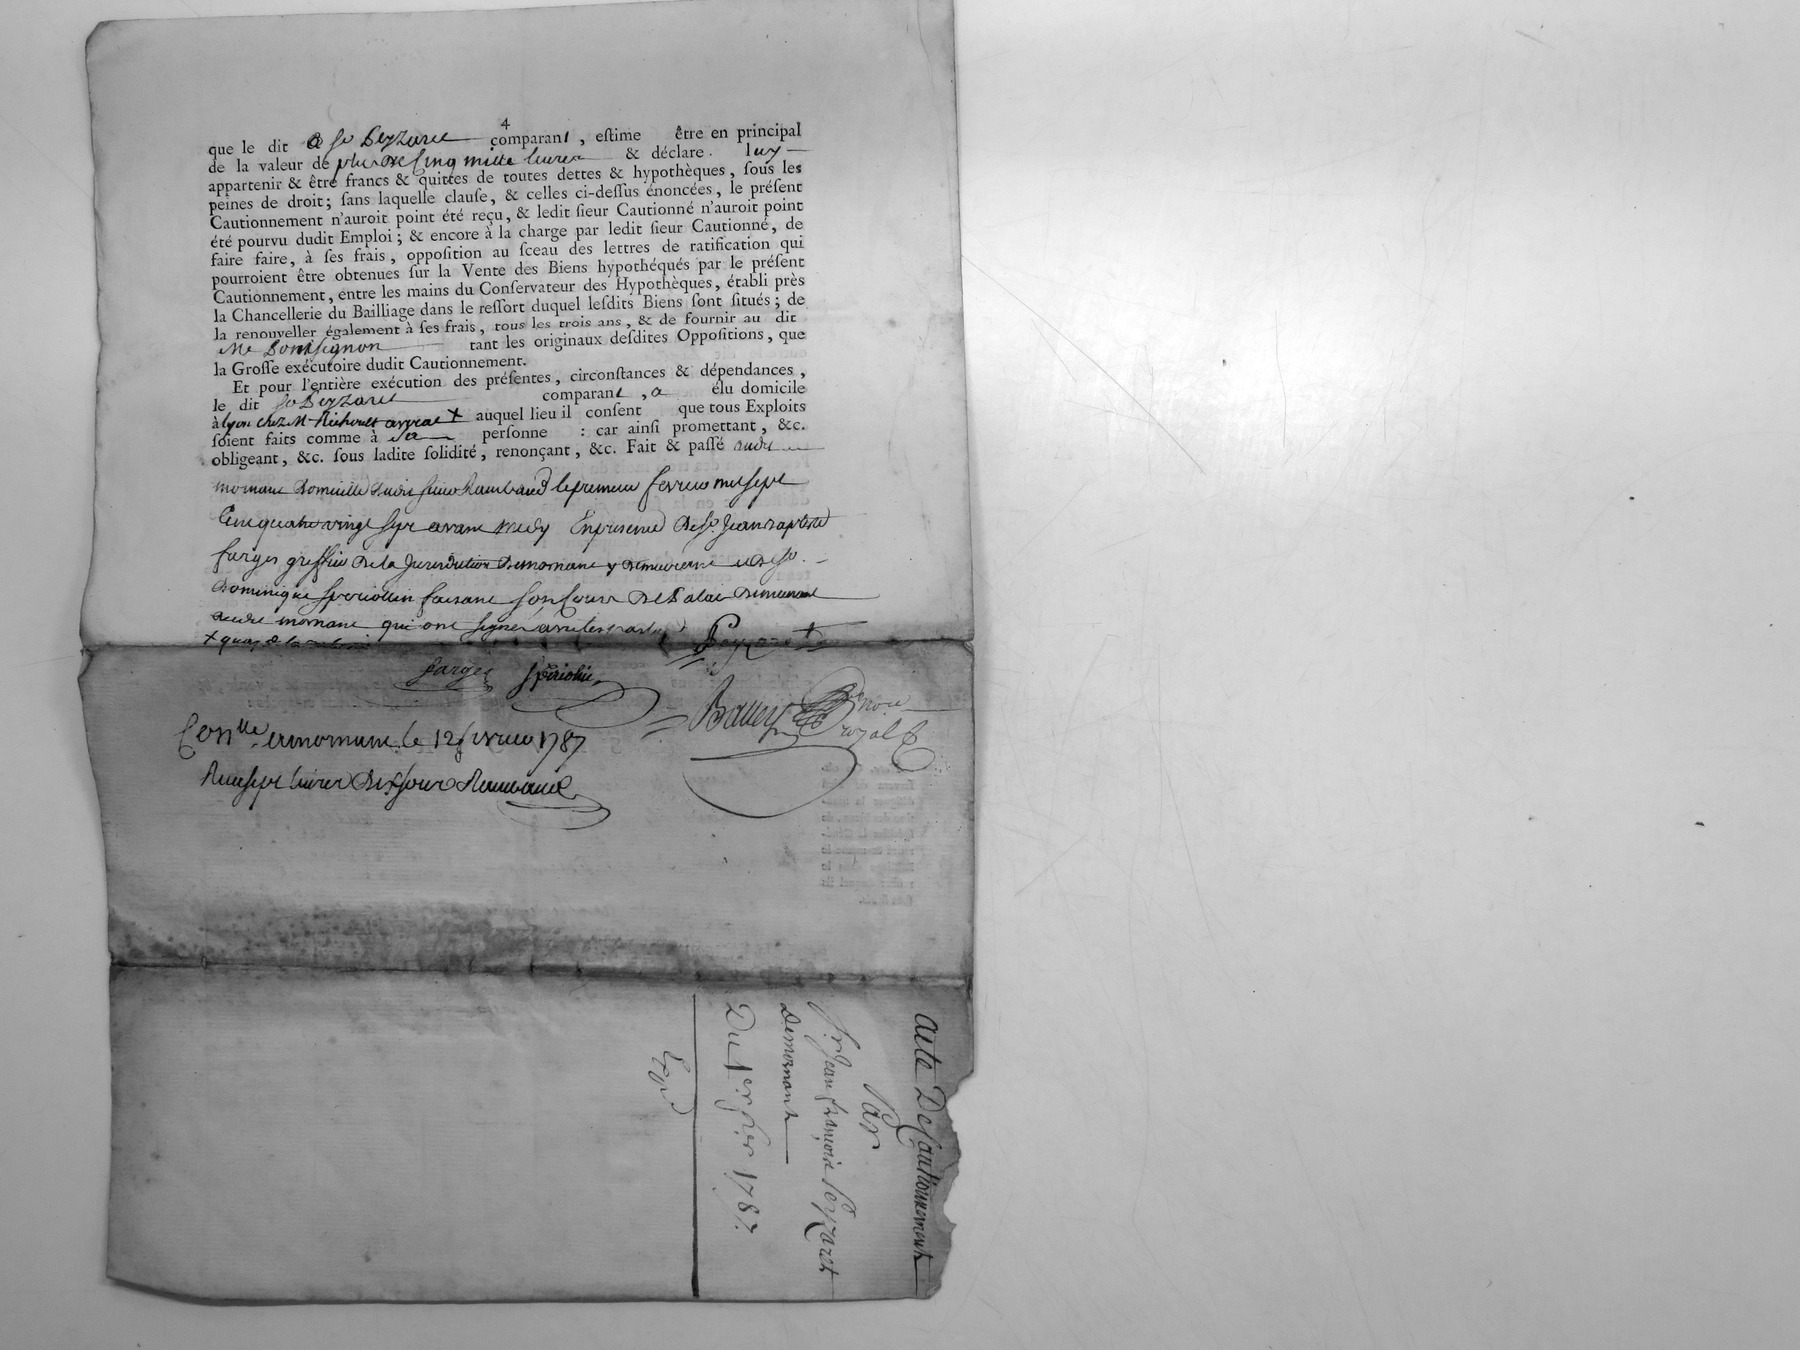 4
que le dit Sr Peyzaret comparant, estime être en principal
de la valeur de plus de Cinq mille livres & déclare. luy
appartenir & être francs & quittes de toutes dettes & hypothèques, sous les
peines de droit; sans laquelle clause, & celles ci-dessus énoncées, le présent
Cautionnement n'auroit point été reçu, & ledit sieur Cautionné n'auroit point
été pourvu dudit Emploi; & encore à la charge par ledit sieur Cautionné, de
faire faire, à ses frais, opposition au sceau des lettres de ratification qui
pourroient être obtenues sur la Vente des Biens hypothéqués par le présent
Cautionnement, entre les mains du Conservateur des Hypothèques, établi près
la Chancellerie du Bailliage dans le ressort duquel lesdits Biens sont situés; de
la renouveller également à ses frais, tous les trois ans, & de fournir au dit
Me tant les originaux desdites Oppositions, que
la Grosse exécutoire dudit Cautionnement.
Et pour l'entière exécution des présentes, circonstances & dépendances,
le dit Sr Peyzaret comparant, a élu domicile
à lyon chez Mr avocat + auquel lieu il consent que tous Exploits
soient faits comme à sa personne : car ainsi promettant, &c.
obligeant, &c. sous ladite solidité, renonçant, &c. Fait & passé audit
mornant Domicille dudit sieur Rambaud le premier fevrier mil sept
Cent quatre vingt sept avant midy En presence de Sr Jean Baptiste
farges greffier de la Jurisdiction de mornant y demeurant et de Sr
Dominique faisant son Cours de Palais demeurant
audit mornant qui ont signé avec les parties Peyzaret
+ quay de
farges
royal
Conlle a mornant le 12 fevrier 1787
Reçu sept livres dix sous Rambaud
acte De Cautionnement
Par
Sr. Jean françois Peyzaret
De mornant
Du 1er fver 1787.
Expé